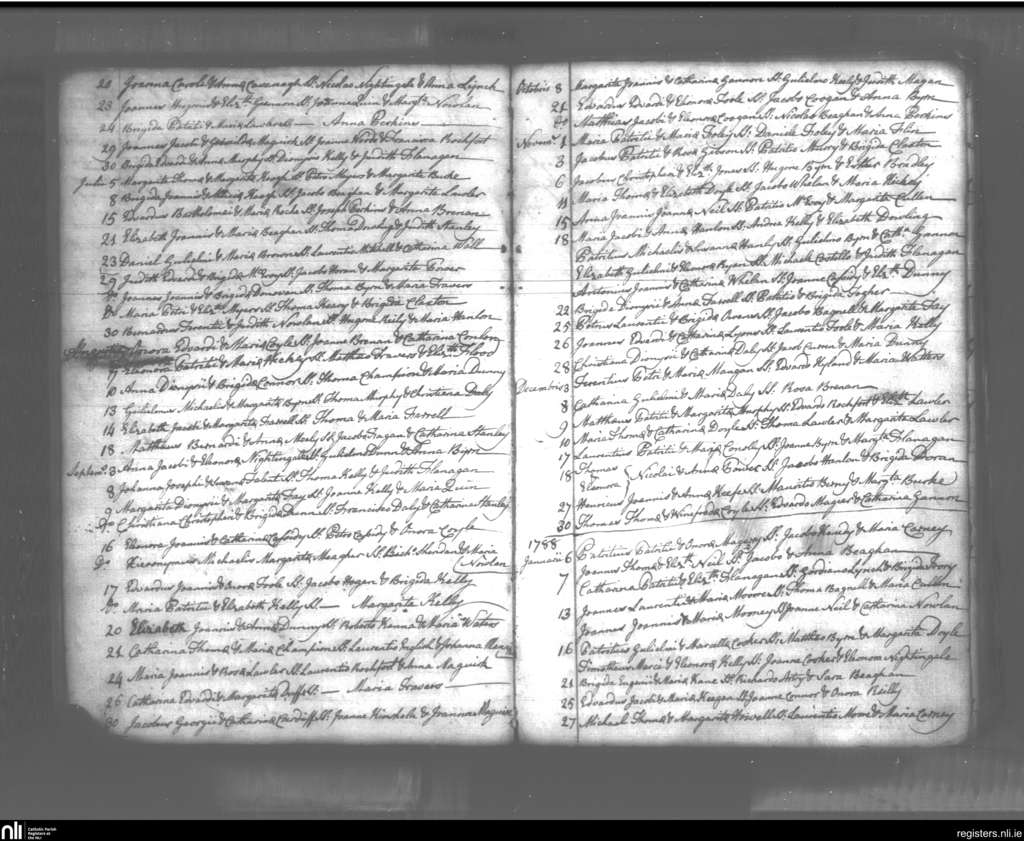 20 Joanna Caroli & Anna Cavanagh St. Nicolao Nightingale & Anna Lynch
23 Joannes Hugonis & Elizth Gannon St. Joanne Quin & Margta Nowlan
24 Brigida Patritii & Maria St. — Anna Perkins
29 Joannes Jacobi & St. Joanne & Rochfort
30 Brigida Edvardi & Anna Murphy St. Dionysio Kelly & Judith Flanagan
Julii 5 Margarita Thoma & Margarita St. Petro Myers & Margarita Burke
8 Brigida Joannis & Keeffe St. Jacobo Beaghan & Margarita Lawler
15 Edvardus Bartholomaei & Maria Roche St. Joseph Perkins & Anna Brenan
21 Elizabeth Joannis & Maria Beaghan St. Thoma Dowling & Judith Stanley
23 Daniel Gulielmi & Maria Browne St. Laurentio Mitchell & Catharina Wall
29 Judith Edvardi & Brigida McEvoy St. Jacobo Horan & Margarita Power
Do Joannes Joannis & Brigida Donovan St. Thoma Byrn & Maria Travers
Do Maria Petri & Elizth Myers St. Thoma Keary & Brigida Claxton
30 Bernardus Terentii & Judith Nowlan St. Hugone Reily & Maria Hanlon
Onora Edvardi & Maria Coyle St. Joanne Brenan & Catharina Conlon
9 Eleonora Patritii & Maria Hickey St. Matthaeo Travers & Elizth Flood
10 Anna Dionysii & Brigida Connor St. Thoma Champion & Maria Dunny
13 Gulielmus Michaelis & Margarita Byrne St. Thoma Murphy & Christiana Daly
14 Elizabeth Jacobi & Margarita Farrell St. Thoma & Maria Farrell
18 Matthaeus Bernardi & Anna Neely St. Jacobo Fagan & Catharina Stanley
Septem. 3 Anna Jacobi & Eleonora Nightingale St. Gulielmo Dunn & Anna Byrn
8 Johanna Josephi & Susanna Talent St. Thoma Kelly & Judith Flanagan
9 Margarita Dionysii & Margarita Fay St. Joanne Kelly & Maria Quin
Do Christiana Christopheri & Brigida Dunn St. Francisco Daly & Catharina Hanley
16 Eleonora Joannis & Catharina Cassidy St. Petro Cassidy & Onora Coyle
Do Hieronymus Michaelis & Margarita Meagher St. Richo. & Maria
Nowlan
17 Edvardus Joannis & Onora Toole St. Jacobo Hogan & Brigida Kelly
Do Maria Patritii & Elizabeth Kelly St. — Margarita Kelly
20 Elizabeth Joannis & Anna Dunny St. Roberto Hanna & Maria Waters
21 Catharina Thoma & Maria Champion St. Laurentio English & Johanna
24 Maria Joannis & Rosa Lawler St. Laurentio Rochfort & Anna Maguire
26 Catharina Edvardi & Margarita Duff St. — Maria Travers
30 Jacobus Georgii & Catharina Cardiff St. Joanne Hinchole & Joanna Maguire
Octobris 8 Margarita Joannis & Catharina Gannon St. Gulielmo Neely & Judith Magan
21 Edvardus Edvardi & Elinora Toole St. Jacobo Coogan & Anna Byrn
Do Matthias Jacobi & Elenora Coogan St. Nicolao Beaghan & Anna Perkins
Novemr. 1 Maria Patritii & Maria Foley St. Daniele Foley & Maria Flin
3 Jacobus Patritii & Rosa Gibson St. Patritio Malony & Brigida Claxton
6 Jacobus Christopheri & Elizth Jones St. Hugone Byrn & Esther Bradley
11 Maria Thoma & Elizabeth Doyle St. Jacobo Whelan & Maria Hickey
15 Anna Joannis & Joanna Neil St. Patritio McEvoy & Margarita Cullen
18 Maria Jacobi & Anna Hanlon St. Andrea Kelly & Elizabeth Dowling
Patritius Michaelis & Susanna Hanly St. Gulielmo Byrn & Catha. Gannon
Elizabeth Gulielmi & Elenora Ryan St. Michaele Costillo & Judith Flanagan
Antonius Joannis & Catharina Whelan St. Joanne Cassidy & Elizth Dunny
22 Brigida Dionysii & Anna Farrell St. Patritio & Brigida Fisher
25 Petrus Laurentii & Brigida Owens St. Jacobo Bagnell & Margarita Fay
26 Joannes Edvardi & Catharina Lyons St. Laurentio Toole & Maria Kelly
28 Christiana Dionysii & Catharina Daly St. Jacobo Curren & Maria Dunny
Decembris 3 Terentius Petri & Maria Mangan St. Edvardo Hyland & Maria Watters
8 Catharina Gulielmi & Maria Daly St. Rosa Brenan
9 Matthaeus Patritii & Margarita Murphy St. Edvardo Rochfort & Elizth Lawler
10 Maria Thoma & Catharina Doyle St. Thoma Lawler & Margarita Lawler
17 Laurentius Patritii & Maria Conoly St. Joanne Byrn & Margta Flanagan
18 Thomas
Elenora } Nicolai & Anna Power St. Jacobo Hanlon & Brigida Doran
27 Henricus Joannis & Anna Keefe St. Mauritio Berry & Margta Burke
30 Thomas Thoma & Winifrida Coyle St. Edvardo Maguire & Catharina Gannon
1788
Januarii 6 Patritius Patritii & Onora Magauly St. Jacobo Handy & Maria Carney
Joannes Thoma & Elizth Neil St. Jacobo & Anna Beaghan
7 Catharina Patritii & Elizth Flanagan St. Gordiano Lynch & Brigida Ivory
13 Joannes Laurentii & Maria Moore St. Thoma Bagnell & Maria Cullen
Joannes Joannis & Maria Mooney St. Joanne Neil & Catharina Nowlan
16 Patritius Gulielmi & Marcella Cooke St. Matthaeo Byrn & Margarita Doyle
Dimathaeus Maria & Elenora Kelly St. Joanne Cooke & Elenora Nightingale
21 Brigida Eugenii & Maria Kane St. Richardo Arty & Sara Beaghan
25 Edvardus Jacobi & Maria Keegan St. Joanne Connor & Onora Reilly
27 Michael Thoma & Margarita Howell St. Laurentio More & Maria Carney
nli
Catholic Parish
Registers at
the NLI
registers.nli.ie